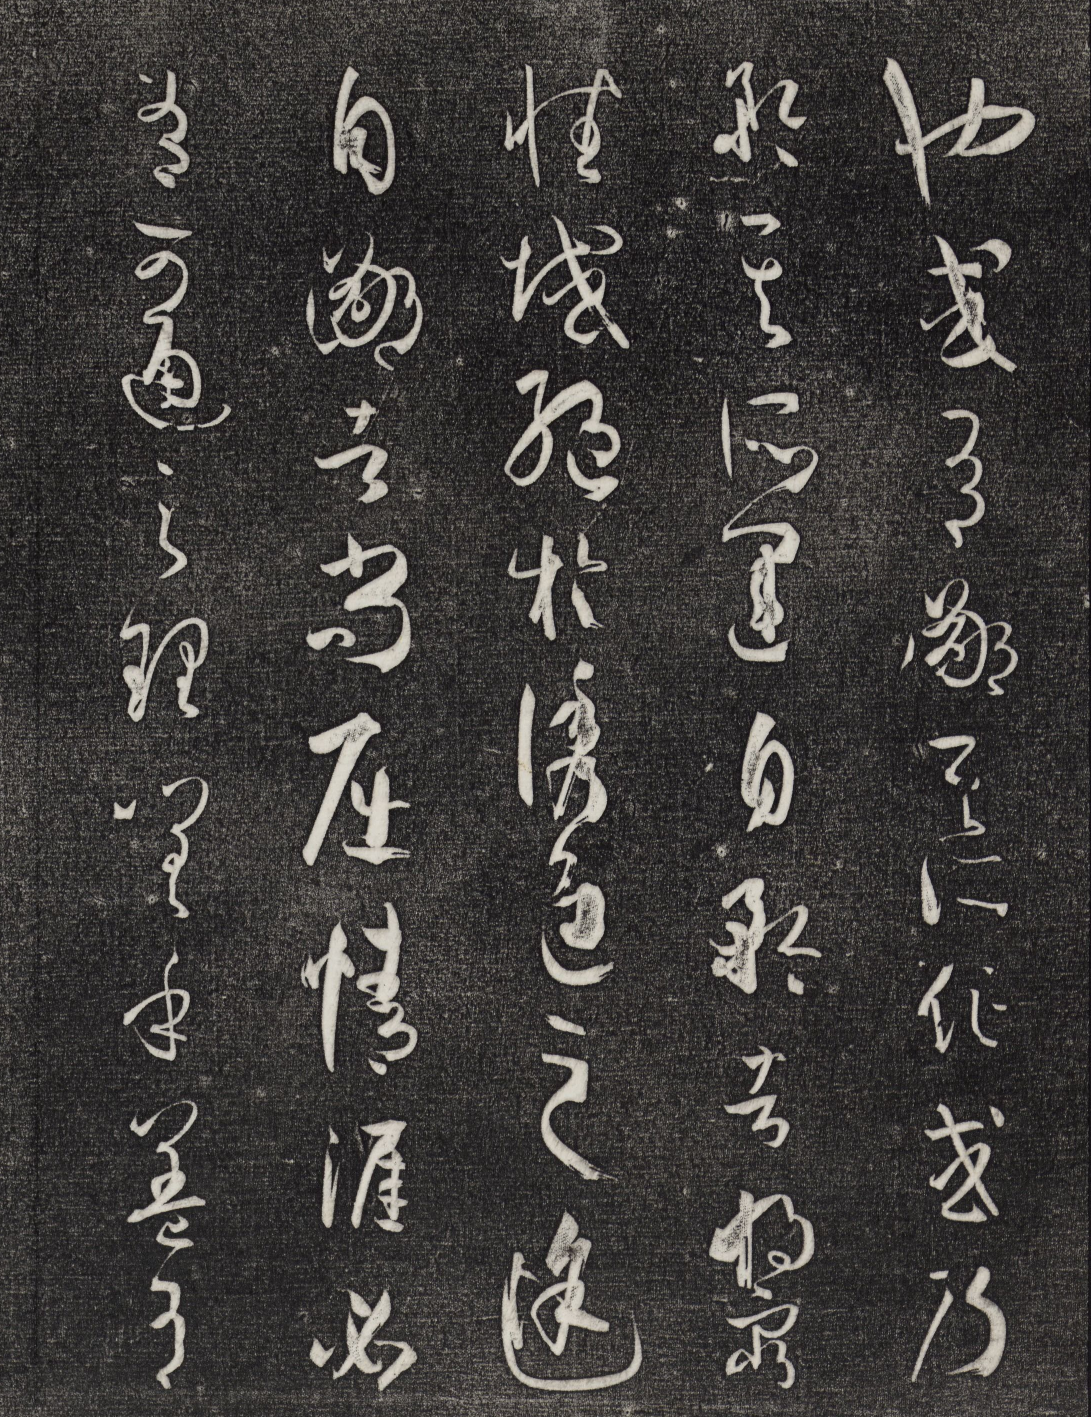 也或有鄙其所作或乃
矜其所運自矜者將窮
性域絕於誘進之途
自鄙者尚屈情涯必
有可通之理嗟乎蓋有